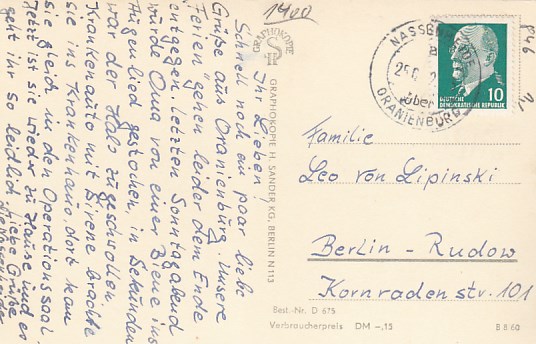 Ihr Lieben!
Schnell noch ein paar liebe
Grüße aus Oranienburg. Unsere
Ferien gehen leider dem Ende
entgegen. Letzten Sonntagabend
wurde Oma von einer Biene ins
Augenlied gestochen, in Sekunden
war der Hals zugeschwollen.
Krankenauto mit Sirene brachte
sie ins Krankenhaus, dort kam
sie gleich in den Operationssaal.
Jetzt ist sie wieder zu Hause und es
geht ihr so leidlich. Liebe Grüße
1400
GRAPHOKOPIE
GRAPHOKOPIE H. SANDER KG. BERLIN N 113
über
ORANIENBURG
10
DEUTSCHE
DEMOKRATISCHE REPUBLIK
Familie
Leo von Lipinski
Berlin - Rudow
Kornradenstr. 101
Best.-Nr. D 675
Verbraucherpreis DM -,15
B 8/60